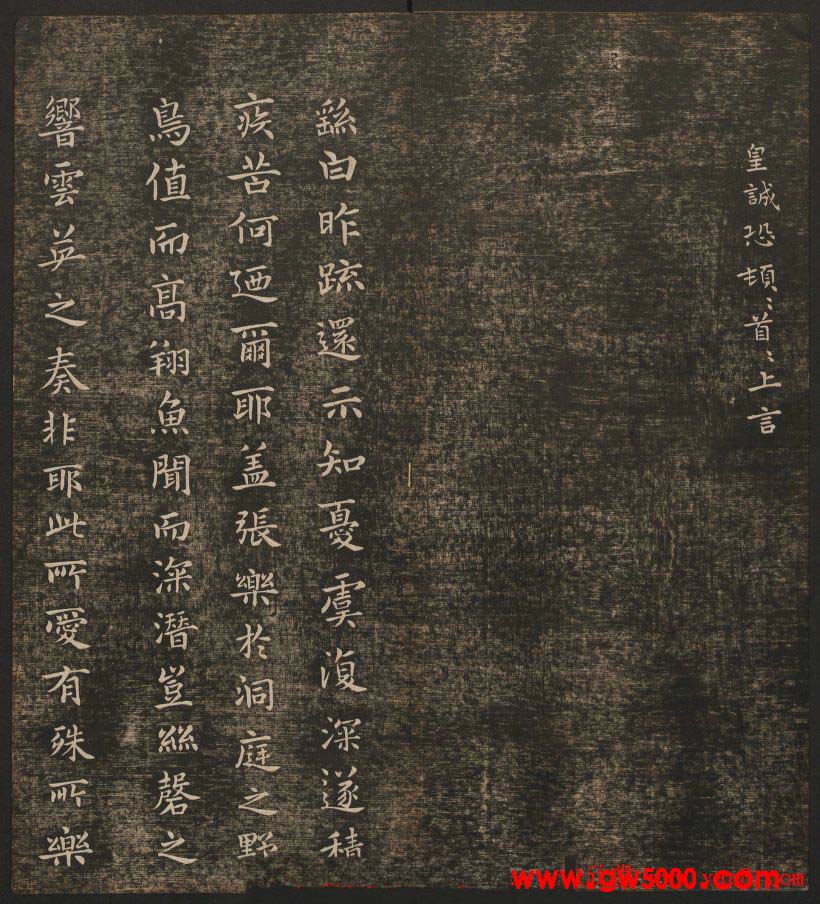 皇誠恐頓〻首〻上言
繇白昨疏還示知憂虞復深遂積
疾苦何迺爾耶盖張樂於洞庭之野
鳥值而高翔魚聞而深潛豈絲磬之
響雲英之奏非耶此所愛有殊所樂
www.gw5000.com